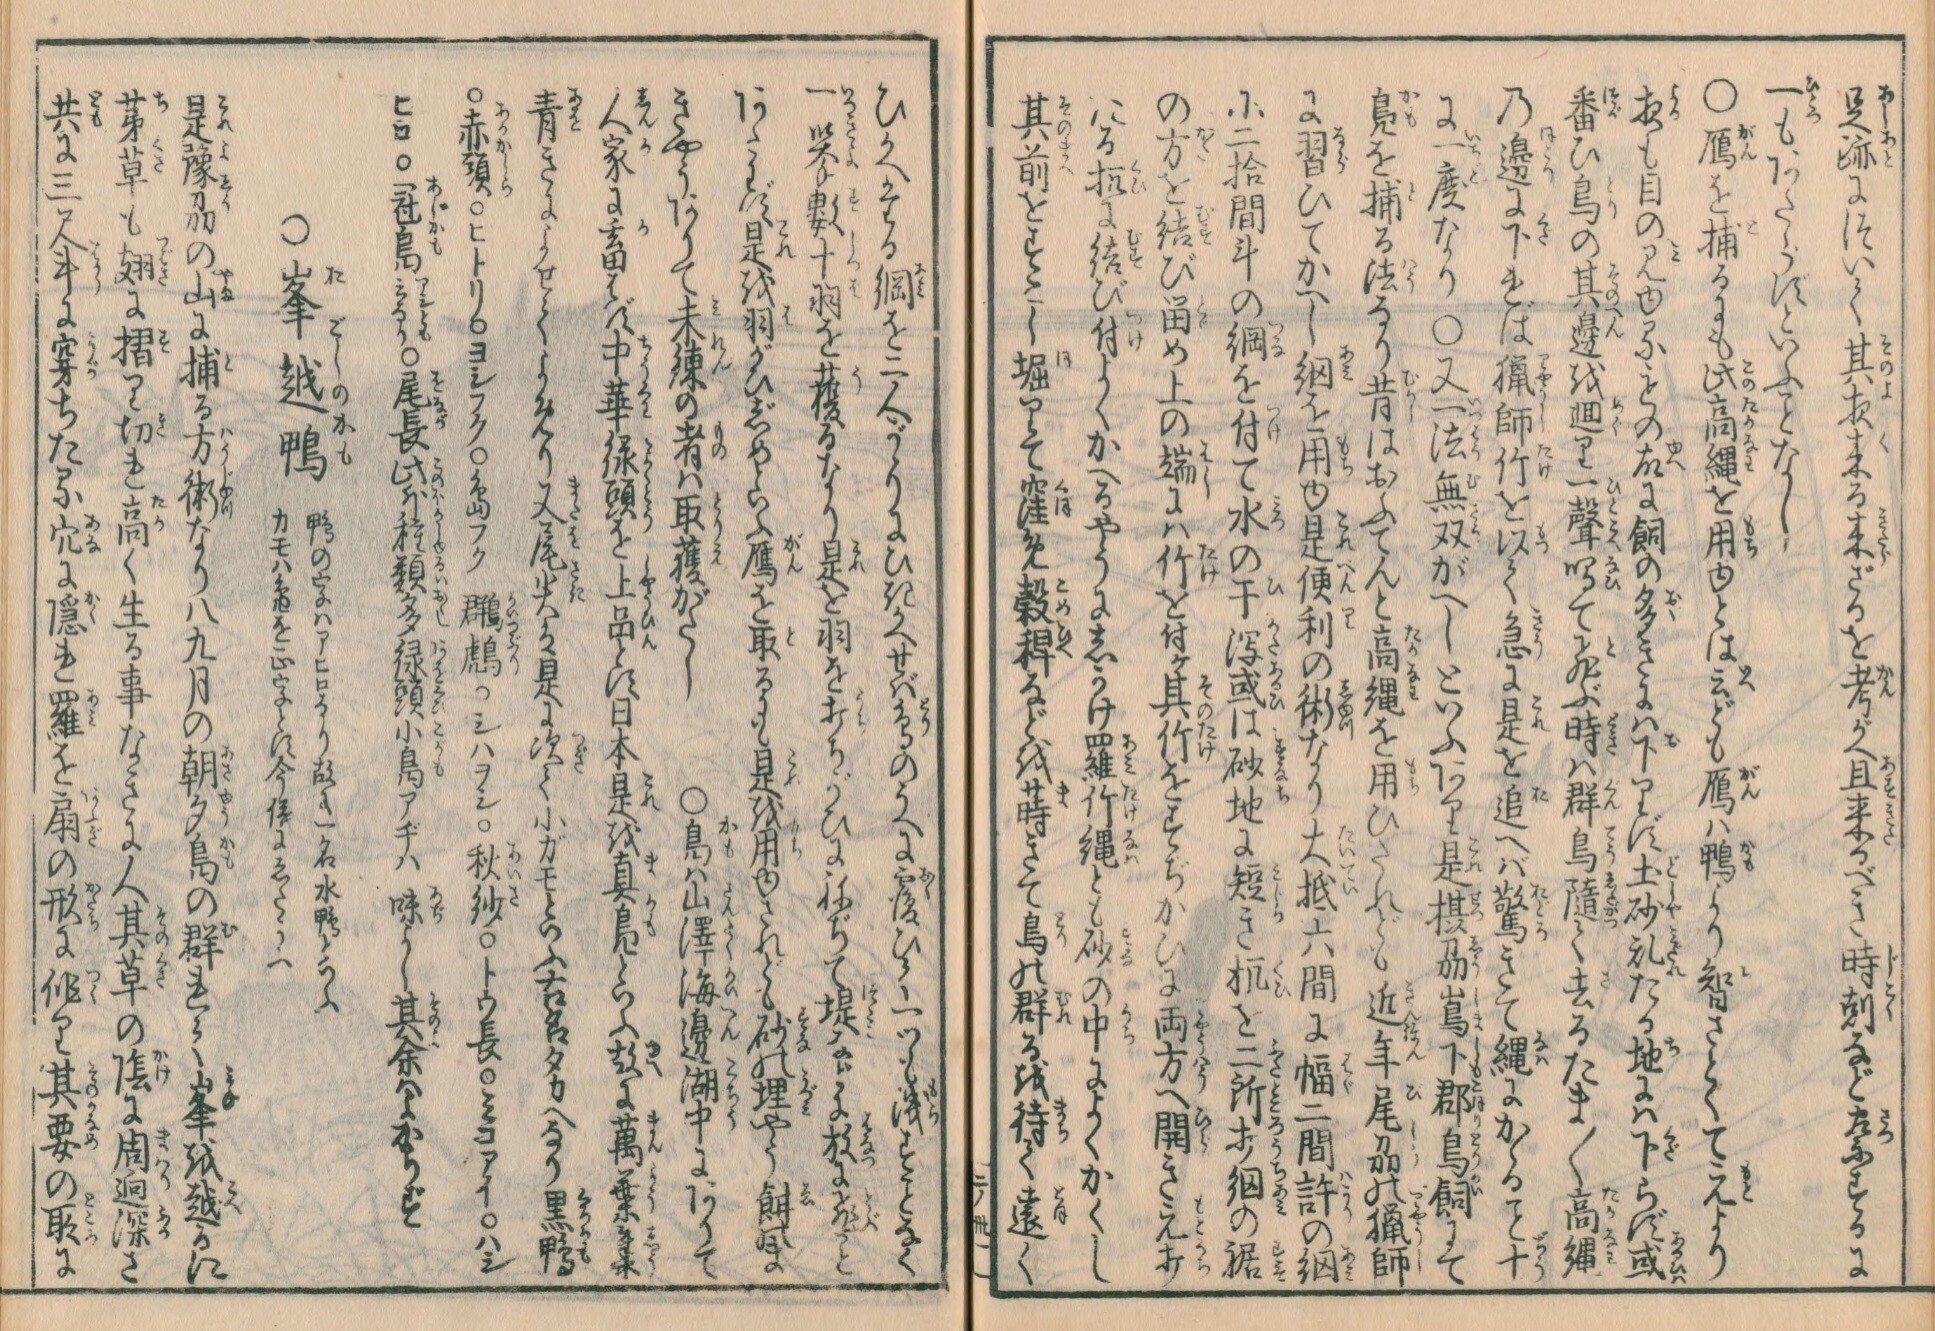 足跡につひて其夜来る来ざるを考がへ且来るべき時刻など察するに
一もあたらずといふことなし
○鴈を捕るにも此高縄を用ゆとは云ども鴈ハ鴨より智さとくてえより
夜も目の見ゆるもの故に飼の多きにハ下りず土砂乱たる地にハ下らず或
番ひ鳥の其邊を廻り一聲鳴て飛ぶ時ハ群鳥随て去るたま〱高縄
乃邊に下れば猟師竹を以て急に是を追へバ驚きて縄にかゝること十
に一度なり ○又一法無双がへしといふあり是摂刕嶌下郡鳥飼にて
鳧を捕る法なり昔はおふてんと高縄を用ひたれども近年尾刕の猟師
に習ひてかへし網を用ゆ是便利の術なり大抵六間に幅二間許の網
に二拾間斗の綱を付て水の干潟或は砂地に短き杭を二所打網の裾
の方を結び留め上の端にハ竹を付ケ其竹をすぢかひに両方へ開きえ打
たる杭に結び付よくかへるやうにしかけ羅竹縄とも砂の中によくかくし
其前をすこし堀りて窪め穀稗などを蒔きて鳥の群るを待て遠く
ひかへたる綱を二人がゝりにひきかへせバ鳥のうへに覆ひて一つも洩すことなく
一挙數十羽を獲るなり是を羽を打ちがひにねぢて堤などに放に飛こと
あたはず是を羽がひじめといふ鴈を取るにも是を用ゆされども砂の埋やう餌のま
きやうありて未練の者ハ取獲がたし　○鳧ハ山澤海邊湖中にありて
人家に畜はず中華緑頭を上品とす日本是を真鳧といふ故に萬葉集
青きによせてよみたり又尾尖ハ是に次ぐ小ガモといふ古名タカヘなり黒鴨
○赤頭○ヒトリ○ヨシフク○島フク　鸊鷉○シハヲシ○秋紗○トウ長○ミコアイ○ハシ
ヒロ○冠鳧○尾長此外種類多し緑頭小鳧アヂハ味よし其余ハよからず
○峯越鴨　鴨の字ハアヒロなり故に一名水鴨といふ
カモハ鳧を正字とす今俗にしたがへ
是豫刕の山に捕る方術なり八九月の朝夕鳧の群れて峯を越るに
茅草も翅に摺り切れ高く生る事なきに人其草の陰に周廻深さ
共に三尺斗に穿ちたる穴に隠れ羅を扇の形に作り其要の所に
二ノ卅一